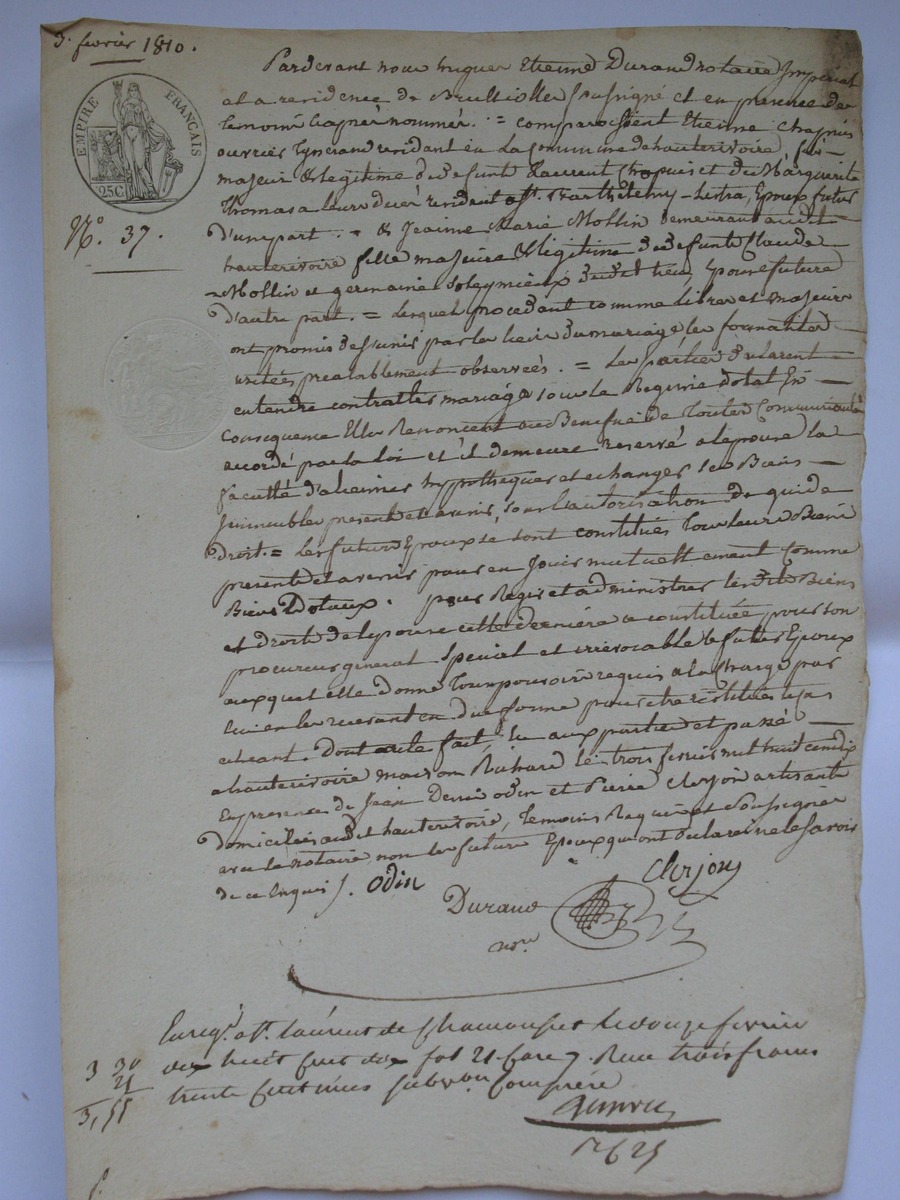 3. fevrier 1810.
EMPIRE FRANÇAIS
25C
N.o 37.
Pardevant nous hugues Etienne Durand notaire Imperial
et a residence de Brullioles soussigné et en presence des
temoins ci apres nommés. = comparoissent Etienne Chapuis
ouvrier tysserand residant en la commune de hauterivoire, fils
majeur & legitime de defunt Laurent Chapuis et de Marguerite
Thomas a leur deces residant a St. Barthelemy-Lestra, Epoux futur
d'une part. = & Jeanne Marie Mollin demeurant audit
hauterivoire fille majeure & legitime de defunt Claude
Mollin et germaine Soleymieux dudit lieu, Epouse future
d'autre part. = Lesquels procedant comme libres et majeurs
ont promis de s'unir par les liens du mariage les formalités
usitées prealablement observées. = Les parties declarent
entendre contracter mariage sous le Regime dotal En
consequence Elles Renoncent au Benefice de toutes Communautés
accordé par la loi et il demeure reservé a l'epouse la
faculté d'aliener hypothequer et echanger ses Biens
immeubles presents et avenir, sous l'autorisation de qui de
droit. = les futurs Epoux se sont constitués tous leurs Biens
presents et avenir pour en jouir mutuellement comme
Biens Dotaux. pour Regir et administrer lesdits Biens
et droits de l'epouse cette derniere a constitué pour son
procureur general special et irrevocable le futur Epoux
auquel elle donne tous pouvoirs requis a la charge par
lui en les recevant en due forme pour etre restitués le cas
echeant. Dont acte fait, lu aux parties et passé
a hauterivoire maison Richard le trois fevrier mil huit cent dix
En presence de Jean Denis odin et Pierre Clerjon artisants
domiciliés audit hauterivoire, temoins Requis et soussignés
avec le notaire non les futurs Epoux qui ont declaré ne le savoir
de ce Enquis /. Odin
Clerjon
Durand
nre.
Enregé. a St. laurent de Chamousset le douze fevrier
dix huit cent dix fol 21 case 7. Recu trois francs
trente centimes subvon Comprise
3 30
25
3,55